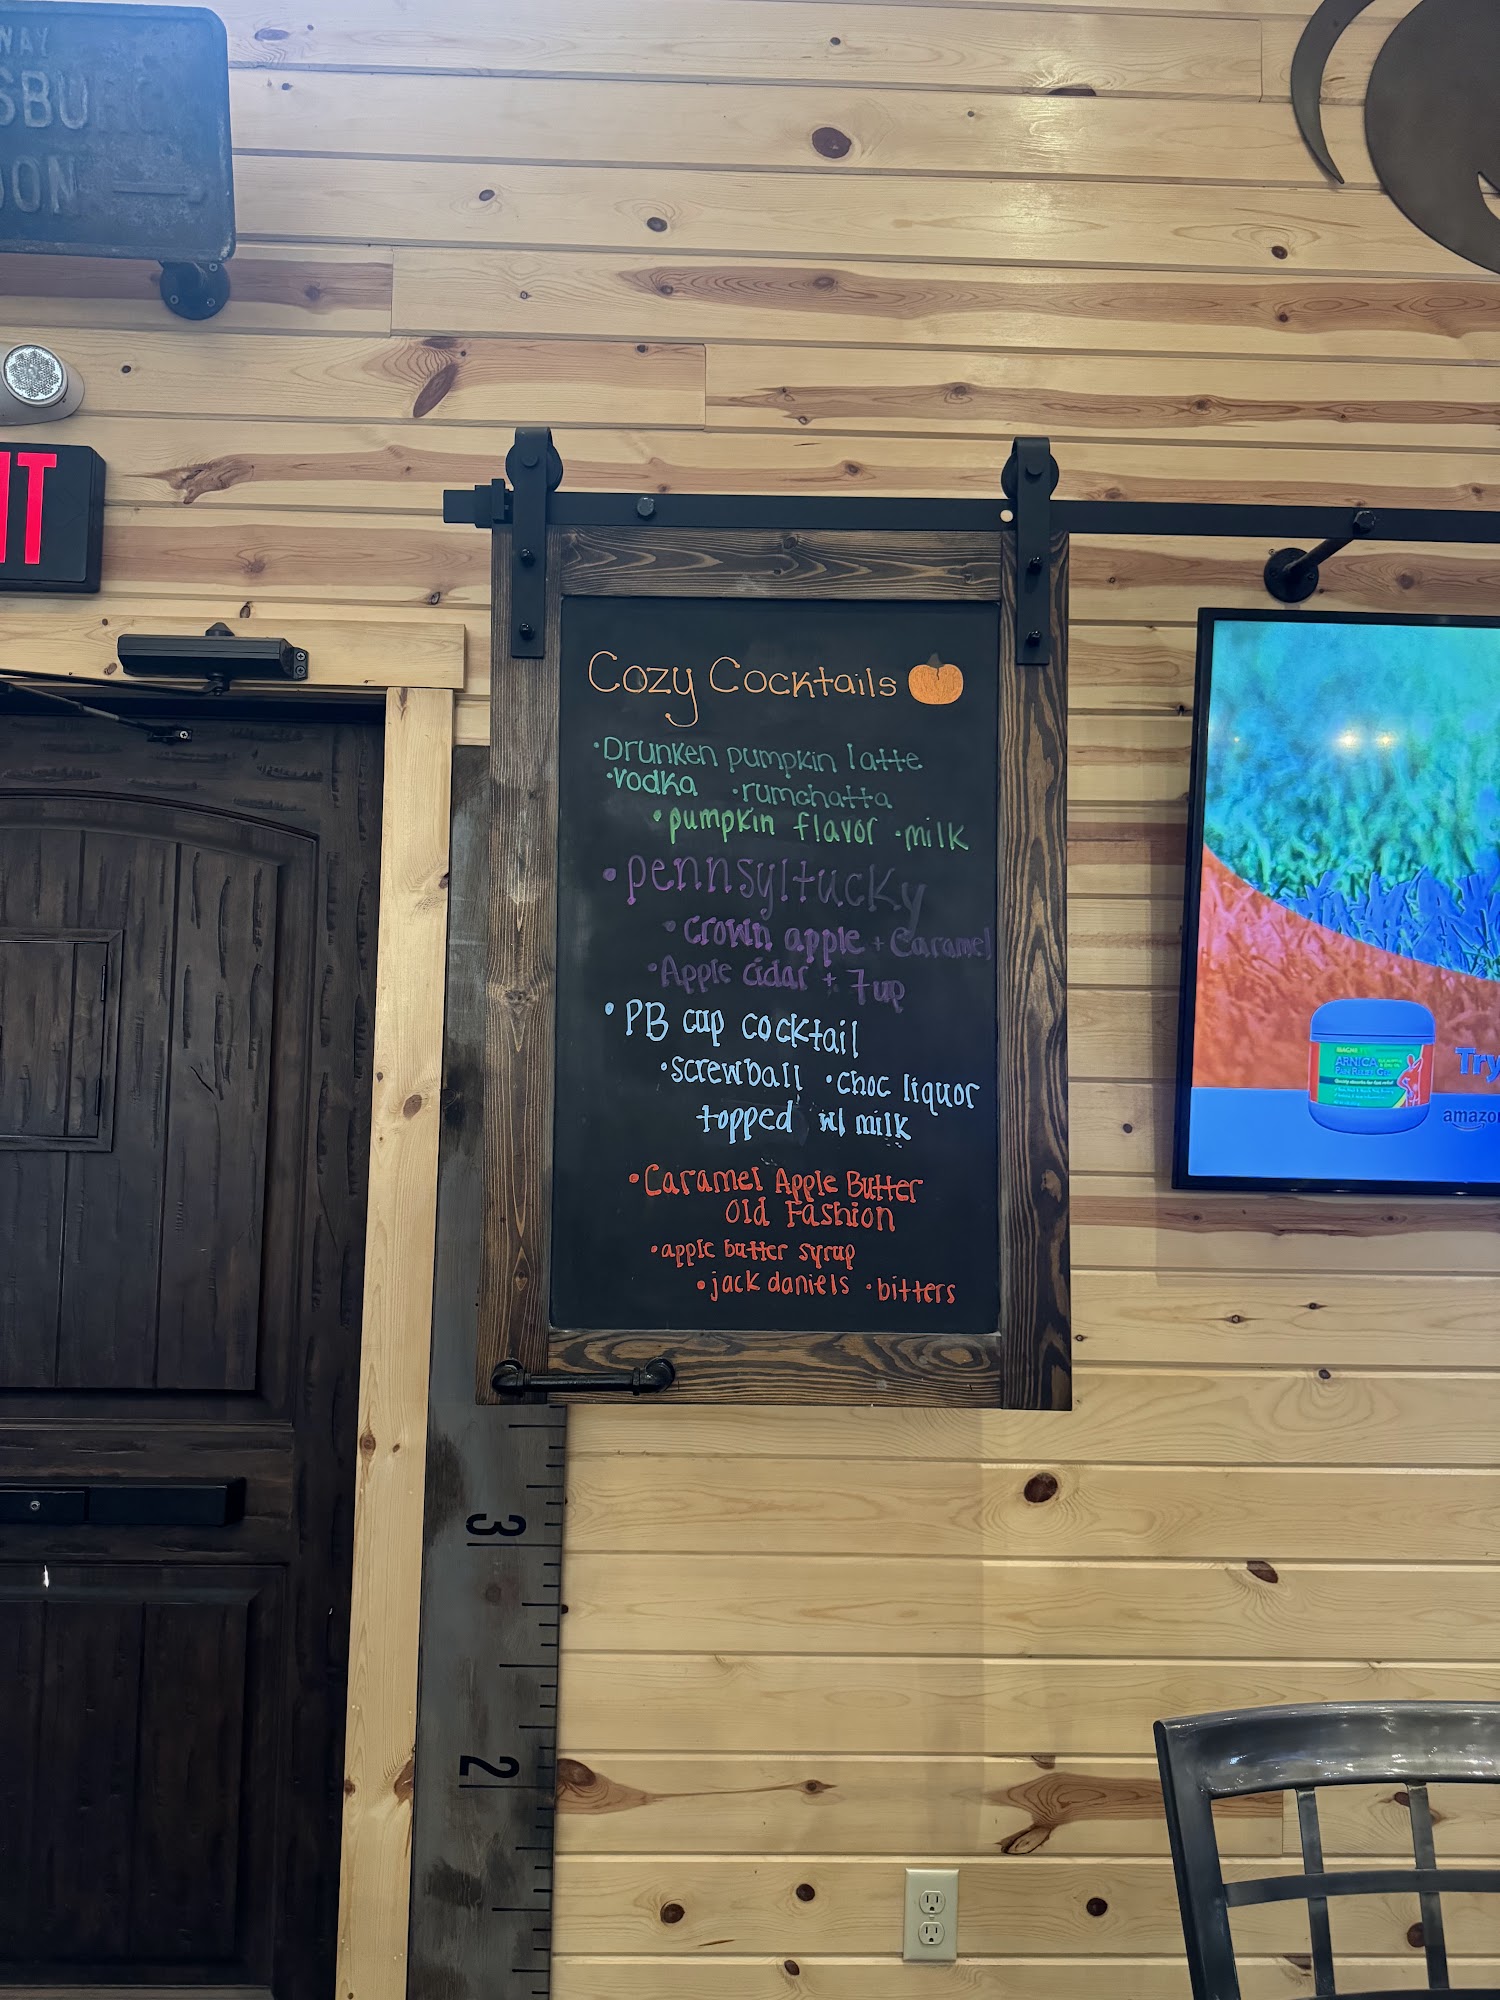 WAY
SBURG
DON
IT
Cozy Cocktails
•Drunken pumpkin latte
•vodka •rumchatta
•pumpkin flavor •milk
•pennsyltucky
•crown apple + Caramel
•Apple cidar + 7up
•PB cup cocktail
•screwball •choc liquor
topped w/ milk
•Caramel Apple Butter
Old Fashion
•apple butter syrup
•jack daniels •bitters
ARNICA
PAIN RELIEF GEL
Try
amazon
3
2